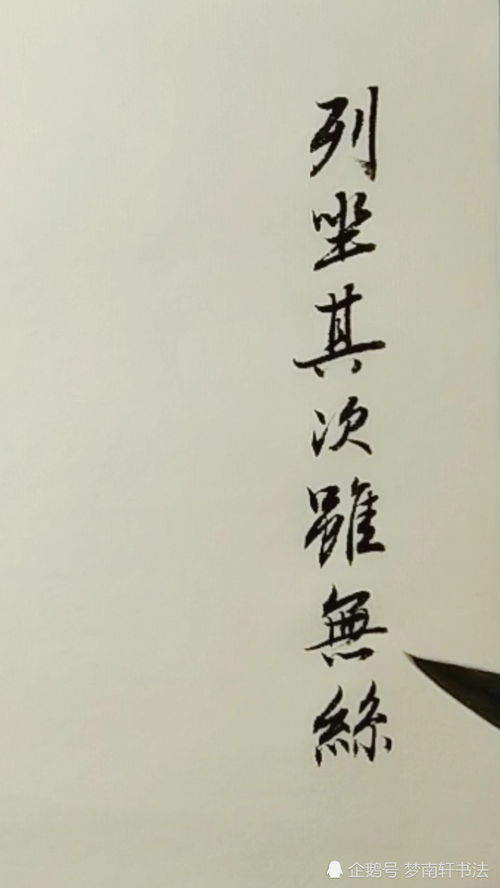 列坐其次雖無絲
企鹅号 梦南轩书法